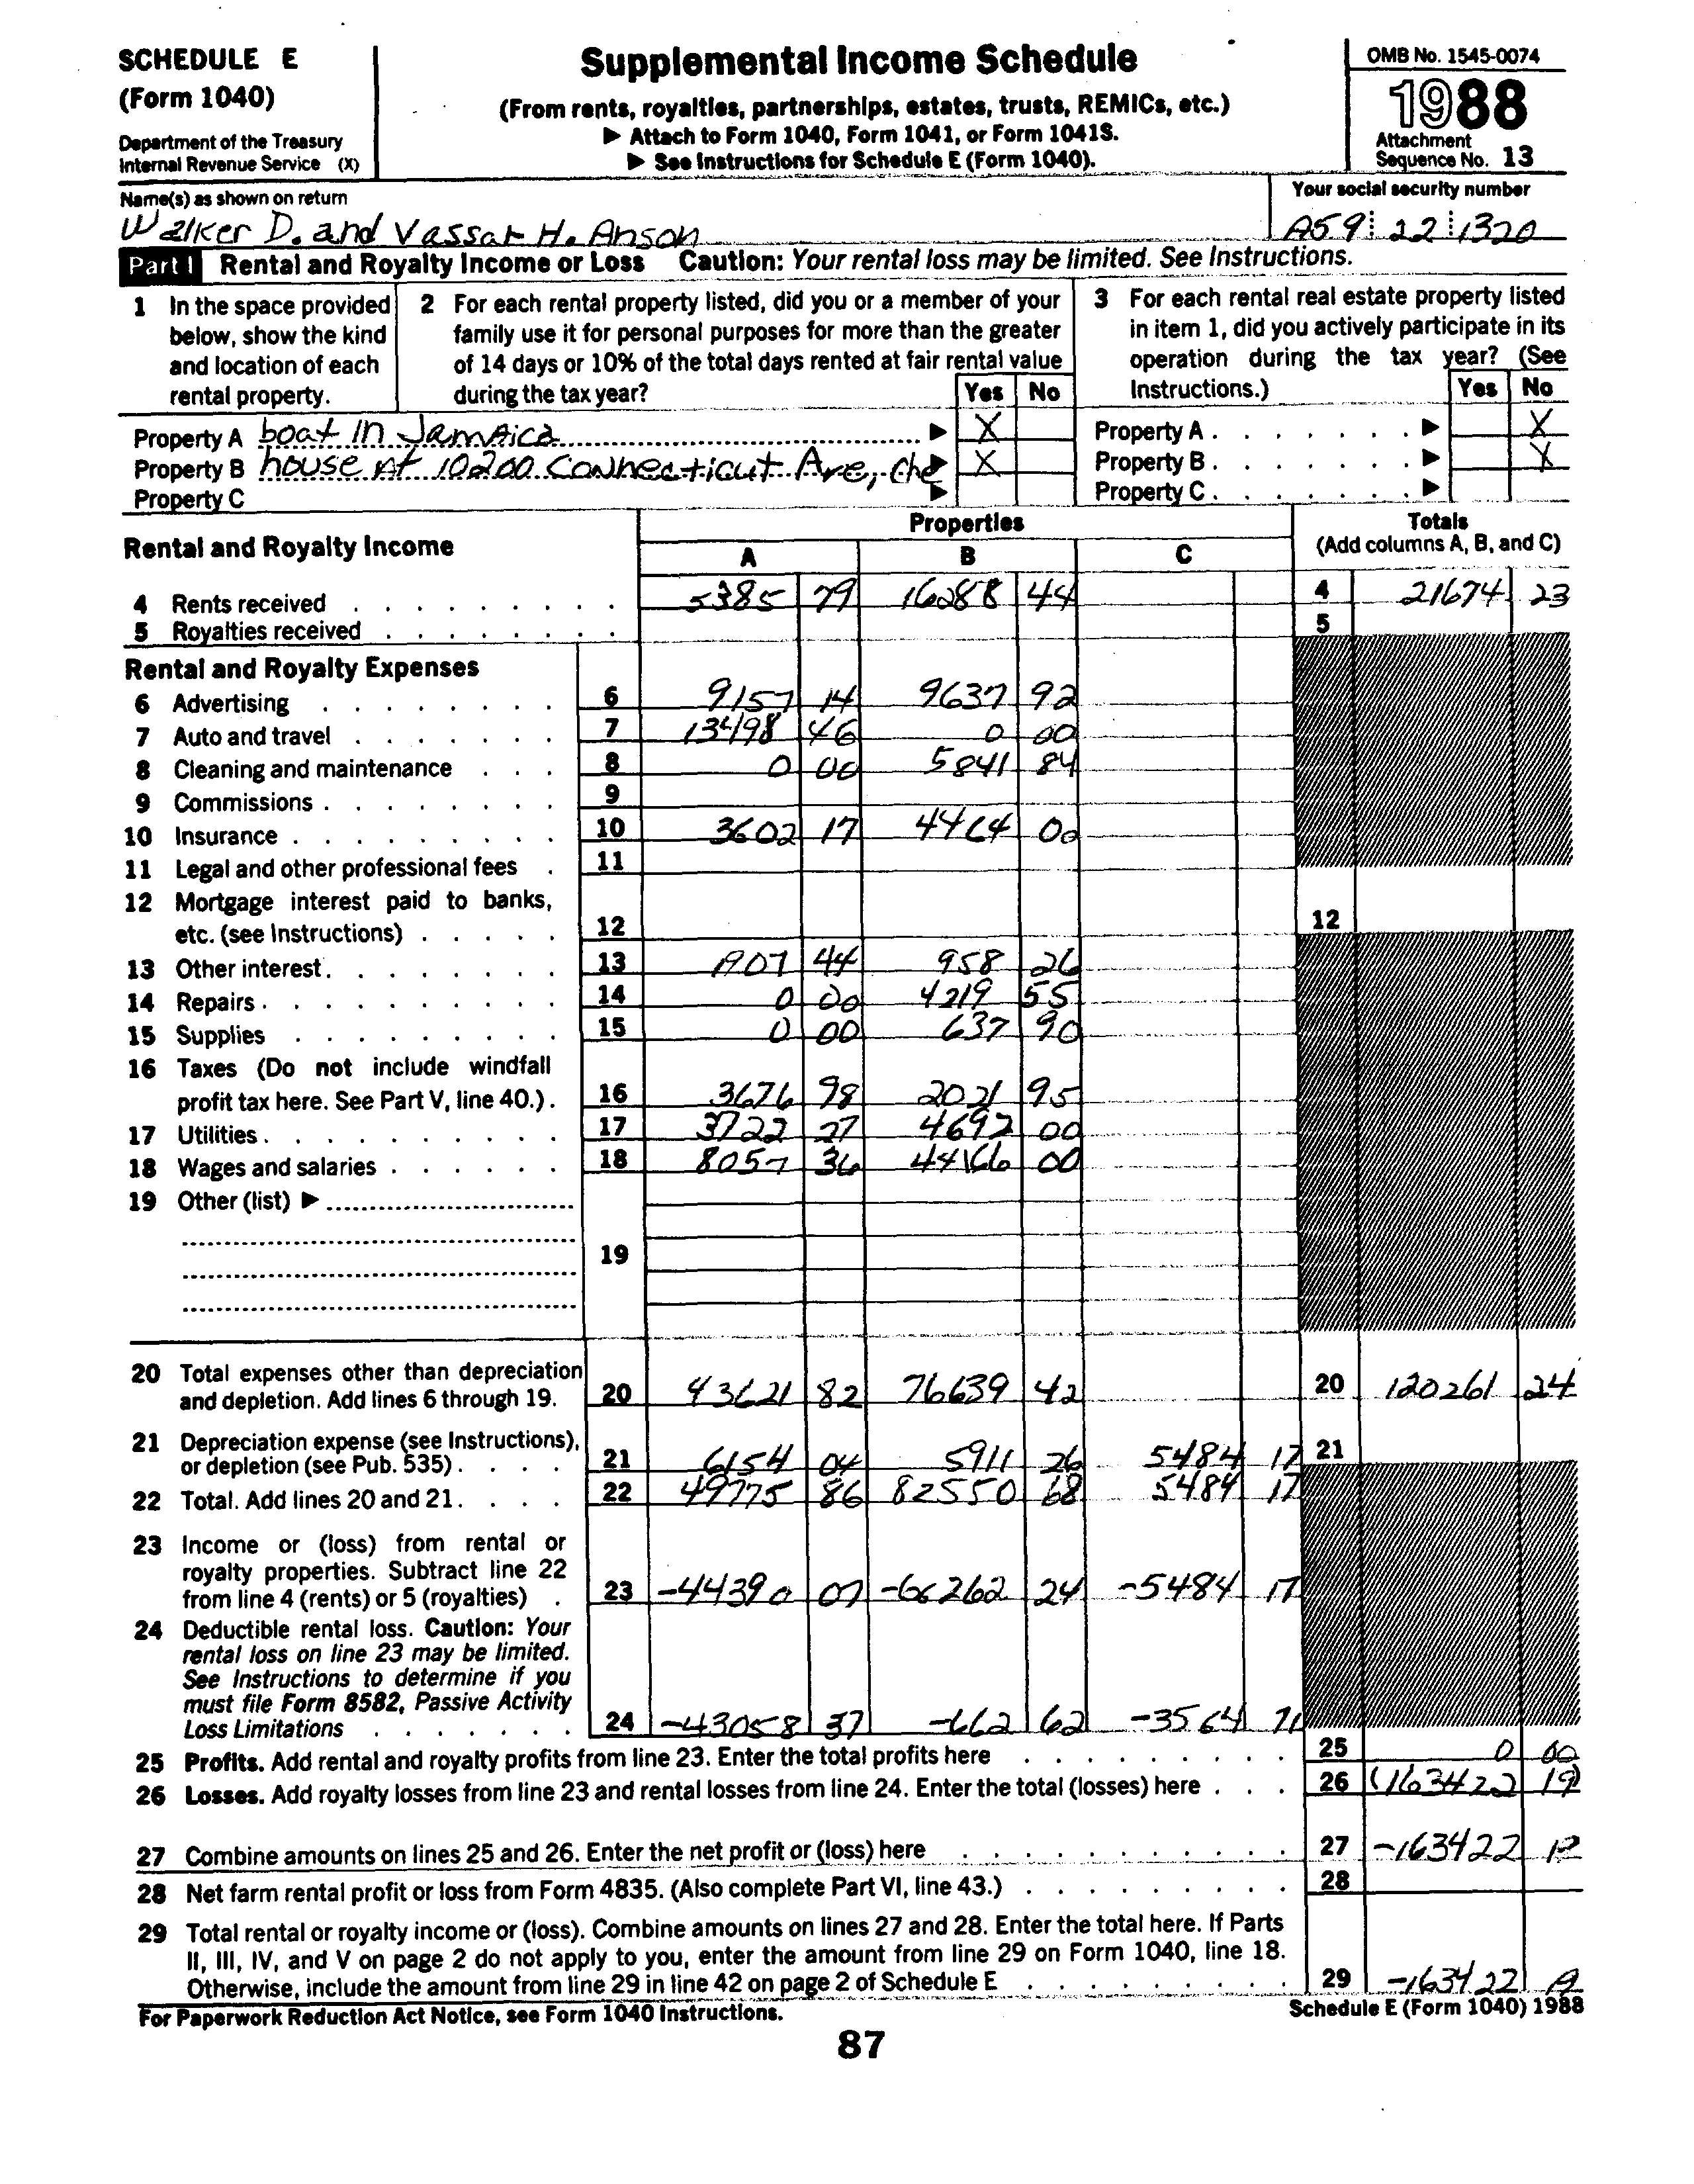 SCHEDULE E
(Form 1040)
Department of the Treasury
Internal Revenue Service (X)
Supplemental Income Schedule
(From rents, royalties, partnerships, estates, trusts, REMICs, etc.)
▶ Attach to Form 1040, Form 1041, or Form 1041S.
▶ See Instructions for Schedule E (Form 1040).
OMB No. 1545-0074
1988
Attachment
Sequence No. 13
Name(s) as shown on return
Walker D. and Vassar H. Anson
Your social security number
A59 22 1320
Part I Rental and Royalty Income or Loss Caution: Your rental loss may be limited. See Instructions.
1 In the space provided
below, show the kind
and location of each
rental property.
2 For each rental property listed, did you or a member of your
family use it for personal purposes for more than the greater
of 14 days or 10% of the total days rented at fair rental value
during the tax year? Yes No
3 For each rental real estate property listed
in item 1, did you actively participate in its
operation during the tax year? (See
Instructions.) Yes No
Property A boat in Jamaica ▶ X
Property B house at 10200 Connecticut Ave, Che ▶ X
Property C ▶
Property A . . . . . . . ▶ X
Property B . . . . . . . ▶ X
Property C . . . . . . . ▶
Rental and Royalty Income
Properties
A B C
Totals
(Add columns A, B, and C)
4 Rents received 5385 79 16288 44 4 21674 23
5 Royalties received 5
Rental and Royalty Expenses
6 Advertising 6 9157 14 9637 92
7 Auto and travel 7 13498 46 0 00
8 Cleaning and maintenance 8 0 00 5841 84
9 Commissions 9
10 Insurance 10 3602 17 4464 00
11 Legal and other professional fees 11
12 Mortgage interest paid to banks,
etc. (see Instructions) 12 12
13 Other interest 13 A07 44 958 26
14 Repairs 14 0 00 4219 55
15 Supplies 15 0 00 637 90
16 Taxes (Do not include windfall
profit tax here. See Part V, line 40.) 16 3676 98 2021 95
17 Utilities 17 3722 27 4692 00
18 Wages and salaries 18 8057 36 44166 00
19 Other (list) ▶
19
20 Total expenses other than depreciation
and depletion. Add lines 6 through 19. 20 43621 82 76639 42 20 120261 24
21 Depreciation expense (see Instructions),
or depletion (see Pub. 535) 21 6154 04 5911 26 5484 17 21
22 Total. Add lines 20 and 21. 22 49775 86 82550 68 5484 17
23 Income or (loss) from rental or
royalty properties. Subtract line 22
from line 4 (rents) or 5 (royalties) 23 -44390 07 -66262 24 -5484 17
24 Deductible rental loss. Caution: Your
rental loss on line 23 may be limited.
See Instructions to determine if you
must file Form 8582, Passive Activity
Loss Limitations 24 -43058 37 -662 62 -3564 71
25 Profits. Add rental and royalty profits from line 23. Enter the total profits here 25 0 00
26 Losses. Add royalty losses from line 23 and rental losses from line 24. Enter the total (losses) here 26 (163422 19)
27 Combine amounts on lines 25 and 26. Enter the net profit or (loss) here 27 -163422 19
28 Net farm rental profit or loss from Form 4835. (Also complete Part VI, line 43.) 28
29 Total rental or royalty income or (loss). Combine amounts on lines 27 and 28. Enter the total here. If Parts
II, III, IV, and V on page 2 do not apply to you, enter the amount from line 29 on Form 1040, line 18.
Otherwise, include the amount from line 29 in line 42 on page 2 of Schedule E 29 -163422 19
For Paperwork Reduction Act Notice, see Form 1040 Instructions. Schedule E (Form 1040) 1988
87